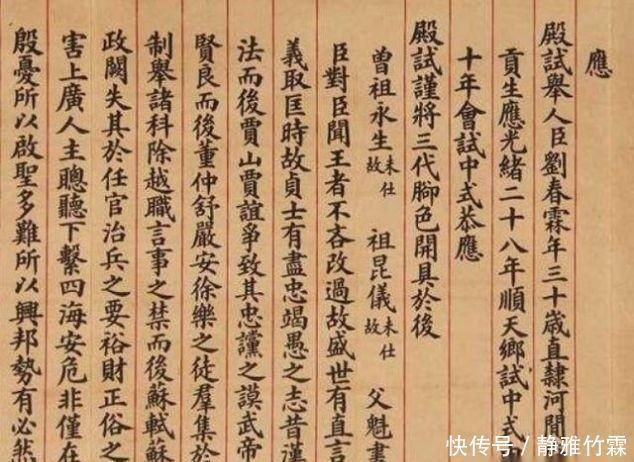 應
殿試舉人臣劉春霖年三十歲直隸河間
貢生應光緒二十八年順天鄉試中式
十年會試中式恭應
殿試謹將三代腳色開具於後
曾祖永生未仕故 祖昆儀未仕故 父魁書
臣對臣聞王者不吝改過故盛世有直言
義取匡時故貞士有盡忠竭愚之志昔漢
法而後賈山賈誼爭致其忠讜之謨武帝
賢良而後董仲舒嚴安徐樂之徒羣集於
制舉諸科除越職言事之禁而後蘇軾蘇
政闕失其於任官治兵之要裕財正俗之
害上廣人主聰聽下繫四海安危非僅在
殷憂所以啟聖多難所以興邦勢有必然
快传号／静雅竹霖